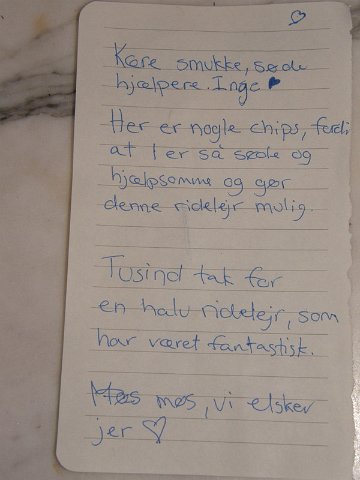 Kære smukke, søde
hjælpere. Inge ♥
Her er nogle chips, fordi
at I er så søde og
hjælpsomme og gør
denne ridelejr mulig.
Tusind tak for
en halv ridelejr, som
har været fantastisk.
møs, vi elsker
jer ♡